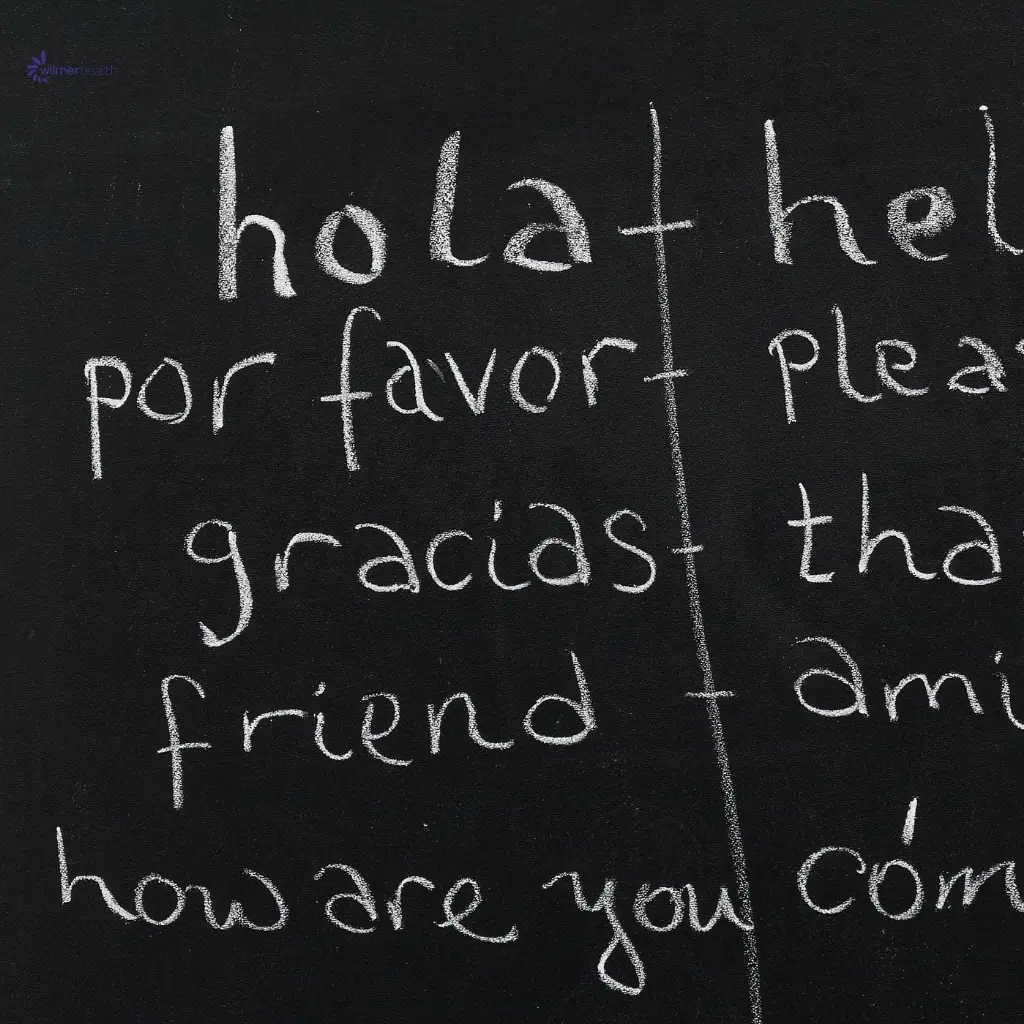 wilmerhealth
hola hel
por favor pleas
gracias tha
friend ami
how are you cóm